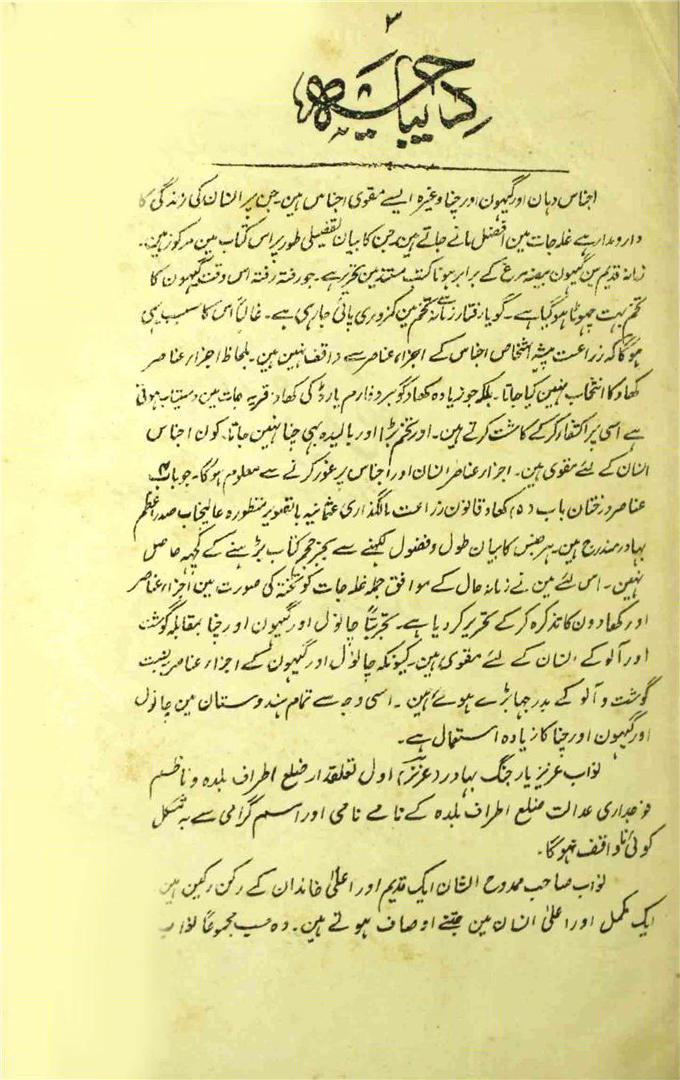 ۳
دیباچہ
اجناس دہان اور گیہون اور چنا وغیرہ ایسے مقوی اجناس ہین۔ جن پر انسان کی زندگی کا
دارومدار ہے غلہ جات مین افضل مانے جاتے ہین۔ جن کا بیان تفصیلی طور پر اس کتاب مین مرکوز ہین۔
زمانہ قدیم مین گیہون بیضہ مرغ کے برابر ہونا کتب مستند مین تحریر ہے۔ جو رفتہ رفتہ اس وقت گیہون کا
تخم بہت چھوٹا ہو گیا ہے۔ گویا رفتار زمانہ سے تخم مین کمزوری پائی جا رہی ہے۔ غالباً اس کا سبب یہی
ہو گا کہ زراعت پیشہ اشخاص اجناس کے اجزاء عناصر سے واقف نہین ہین۔ بلحاظ اجزاء عناصر
کھاد کا انتخاب نہین کیا جاتا۔ بلکہ جو زیادہ کھاد گوبر و فارم یارڈ کی کھاد قریہ جات مین دستیاب ہوتی
ہے اسی پر اکتفاء کر کے کاشت کرتے ہین۔ اور تخم بڑا اور بالیدہ بہی چنا نہین جاتا، کون اجناس
انسان کے لئے مقوی ہین۔ اجزاء عناصر انسان اور اجناس پر غور کرنے سے معلوم ہو گا۔ جو باب ۴
عناصر درختان باب (۵) کھاد قانون زراعت مالگذاری عثمانیہ با تصویر منظورہ عالیجناب صدر اعظم
بہادر مندرج ہین۔ ہر جنس کا بیان طول و فضول لکہنے سے بجز حجم کتاب بڑہنے کے کچہہ حاصل
نہین۔ اس لئے مین نے زمانہ حال کے موافق جملہ غلہ جات کو تختہ کی صورت مین اجزاء عناصر
اور کھادون کا تذکرہ کر کے تحریر کر دیا ہے۔ تجربتاً چانول اور گیہون اور چنا بمقابلہ گوشت
اور آلو کے انسان کے لئے مقوی ہین۔ کیونکہ چانول اور گیہون کے اجزاء عناصر بہ نسبت
گوشت و آلو کے بدرجہا بڑے ہوئے ہین۔ اسی وجہ سے تمام ہندوستان مین چانول
اور گیہون اور چنا کا زیادہ استعمال ہے۔
نواب عزیز یار جنگ بہادر (عزیز) اول تعلقدار ضلع اطراف بلدہ و ناظم
فوجداری عدالت ضلع اطراف بلدہ کے نامے نامی اور اسم گرامی سے بہ مشکل
کوئی ناواقف نہوگا۔
نواب صاحب ممدوح الشان ایک قدیم اور اعلیٰ خاندان کے رکن رکین ہین
ایک مکمل اور اعلیٰ انسان مین جتنے اوصاف ہوتے ہین۔ وہ سب مجموعاً نواب